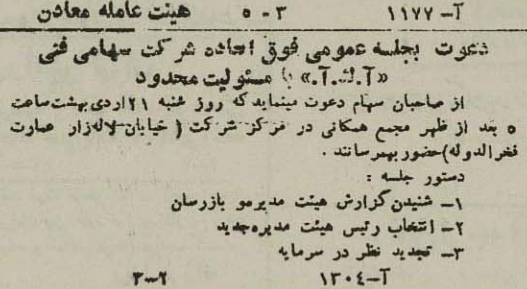 آ- ۱۱۷۷ ۳ - ۵ هیئت عامله معادن
دعوت بجلسه عمومی فوق العاده شرکت سهامی فنی
«آ.ك.آ.» با مسئولیت محدود
از صاحبان سهام دعوت مینماید که روز شنبه ۲۱ اردی بهشت ساعت
۵ بعد از ظهر مجمع همگانی در مرکز شرکت ( خیابان لاله‌زار عمارت
فخرالدوله) حضور بهمرسانند .
دستور جلسه :
۱- شنیدن گزارش هیئت مدیره و بازرسان
۲- انتخاب رئیس هیئت مدیره جدید
۳- تجدید نظر در سرمایه
آ-۱۳۰۴ ۲-۳